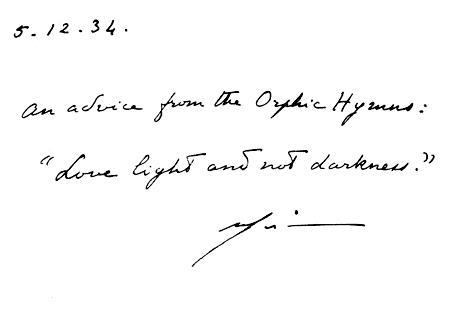 5-12.34.
an advice from the Orphic Hymns:
"Love light and not darkness."